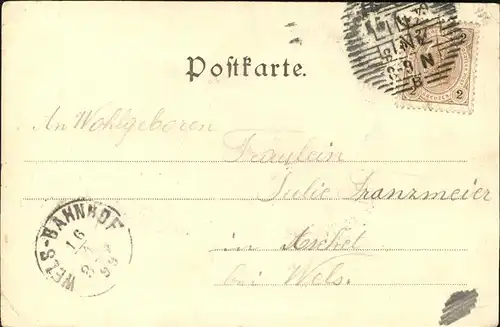 LINZ
Postkarte.
2 2
An Wohlgeboren
Fräulein
Julie Franzmeier
in Aschet
bei Wels.
WELS-BAHNHOF
16
99